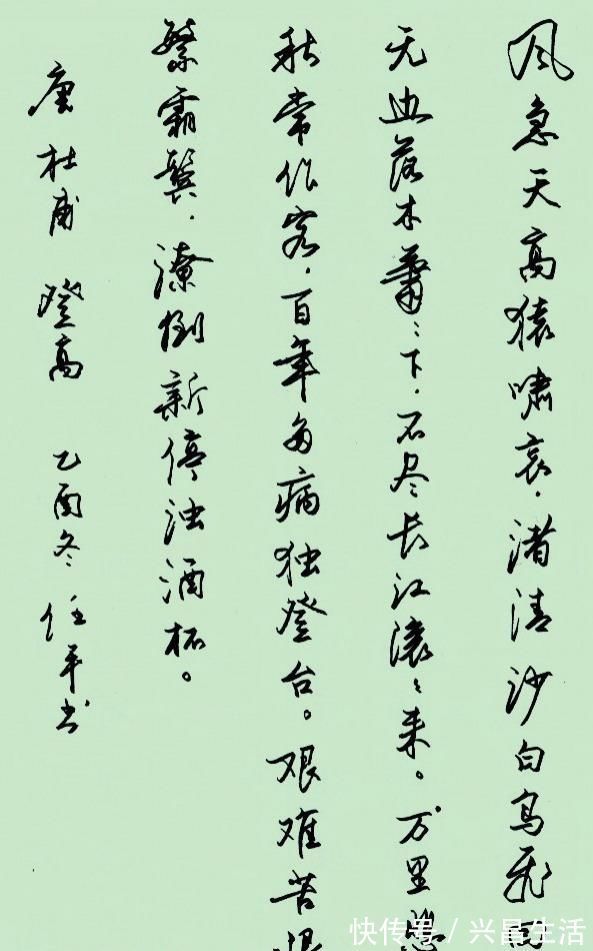 风急天高猿啸哀，渚清沙白鸟飞
无边落木萧〻下，不尽长江滚〻来。万里悲
秋常作客，百年多病独登台。艰难苦恨
繁霜鬓，潦倒新停浊酒杯。
唐杜甫 登高 乙酉冬 任平书
快传号 / 兴昌生活